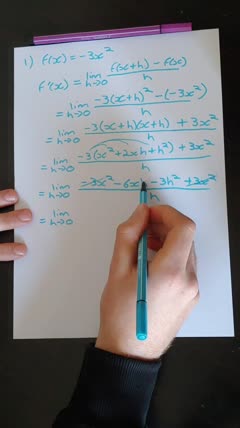 1) f(x) = -3x²
f'(x) = lim h→0 f(x+h) - f(x) / h
= lim h→0 -3(x+h)² - (-3x²) / h
= lim h→0 -3(x+h)(x+h) + 3x² / h
= lim h→0 -3(x²+2xh+h²) + 3x² / h
= lim h→0 -3x² - 6xh - 3h² + 3x² / h
= lim h→0